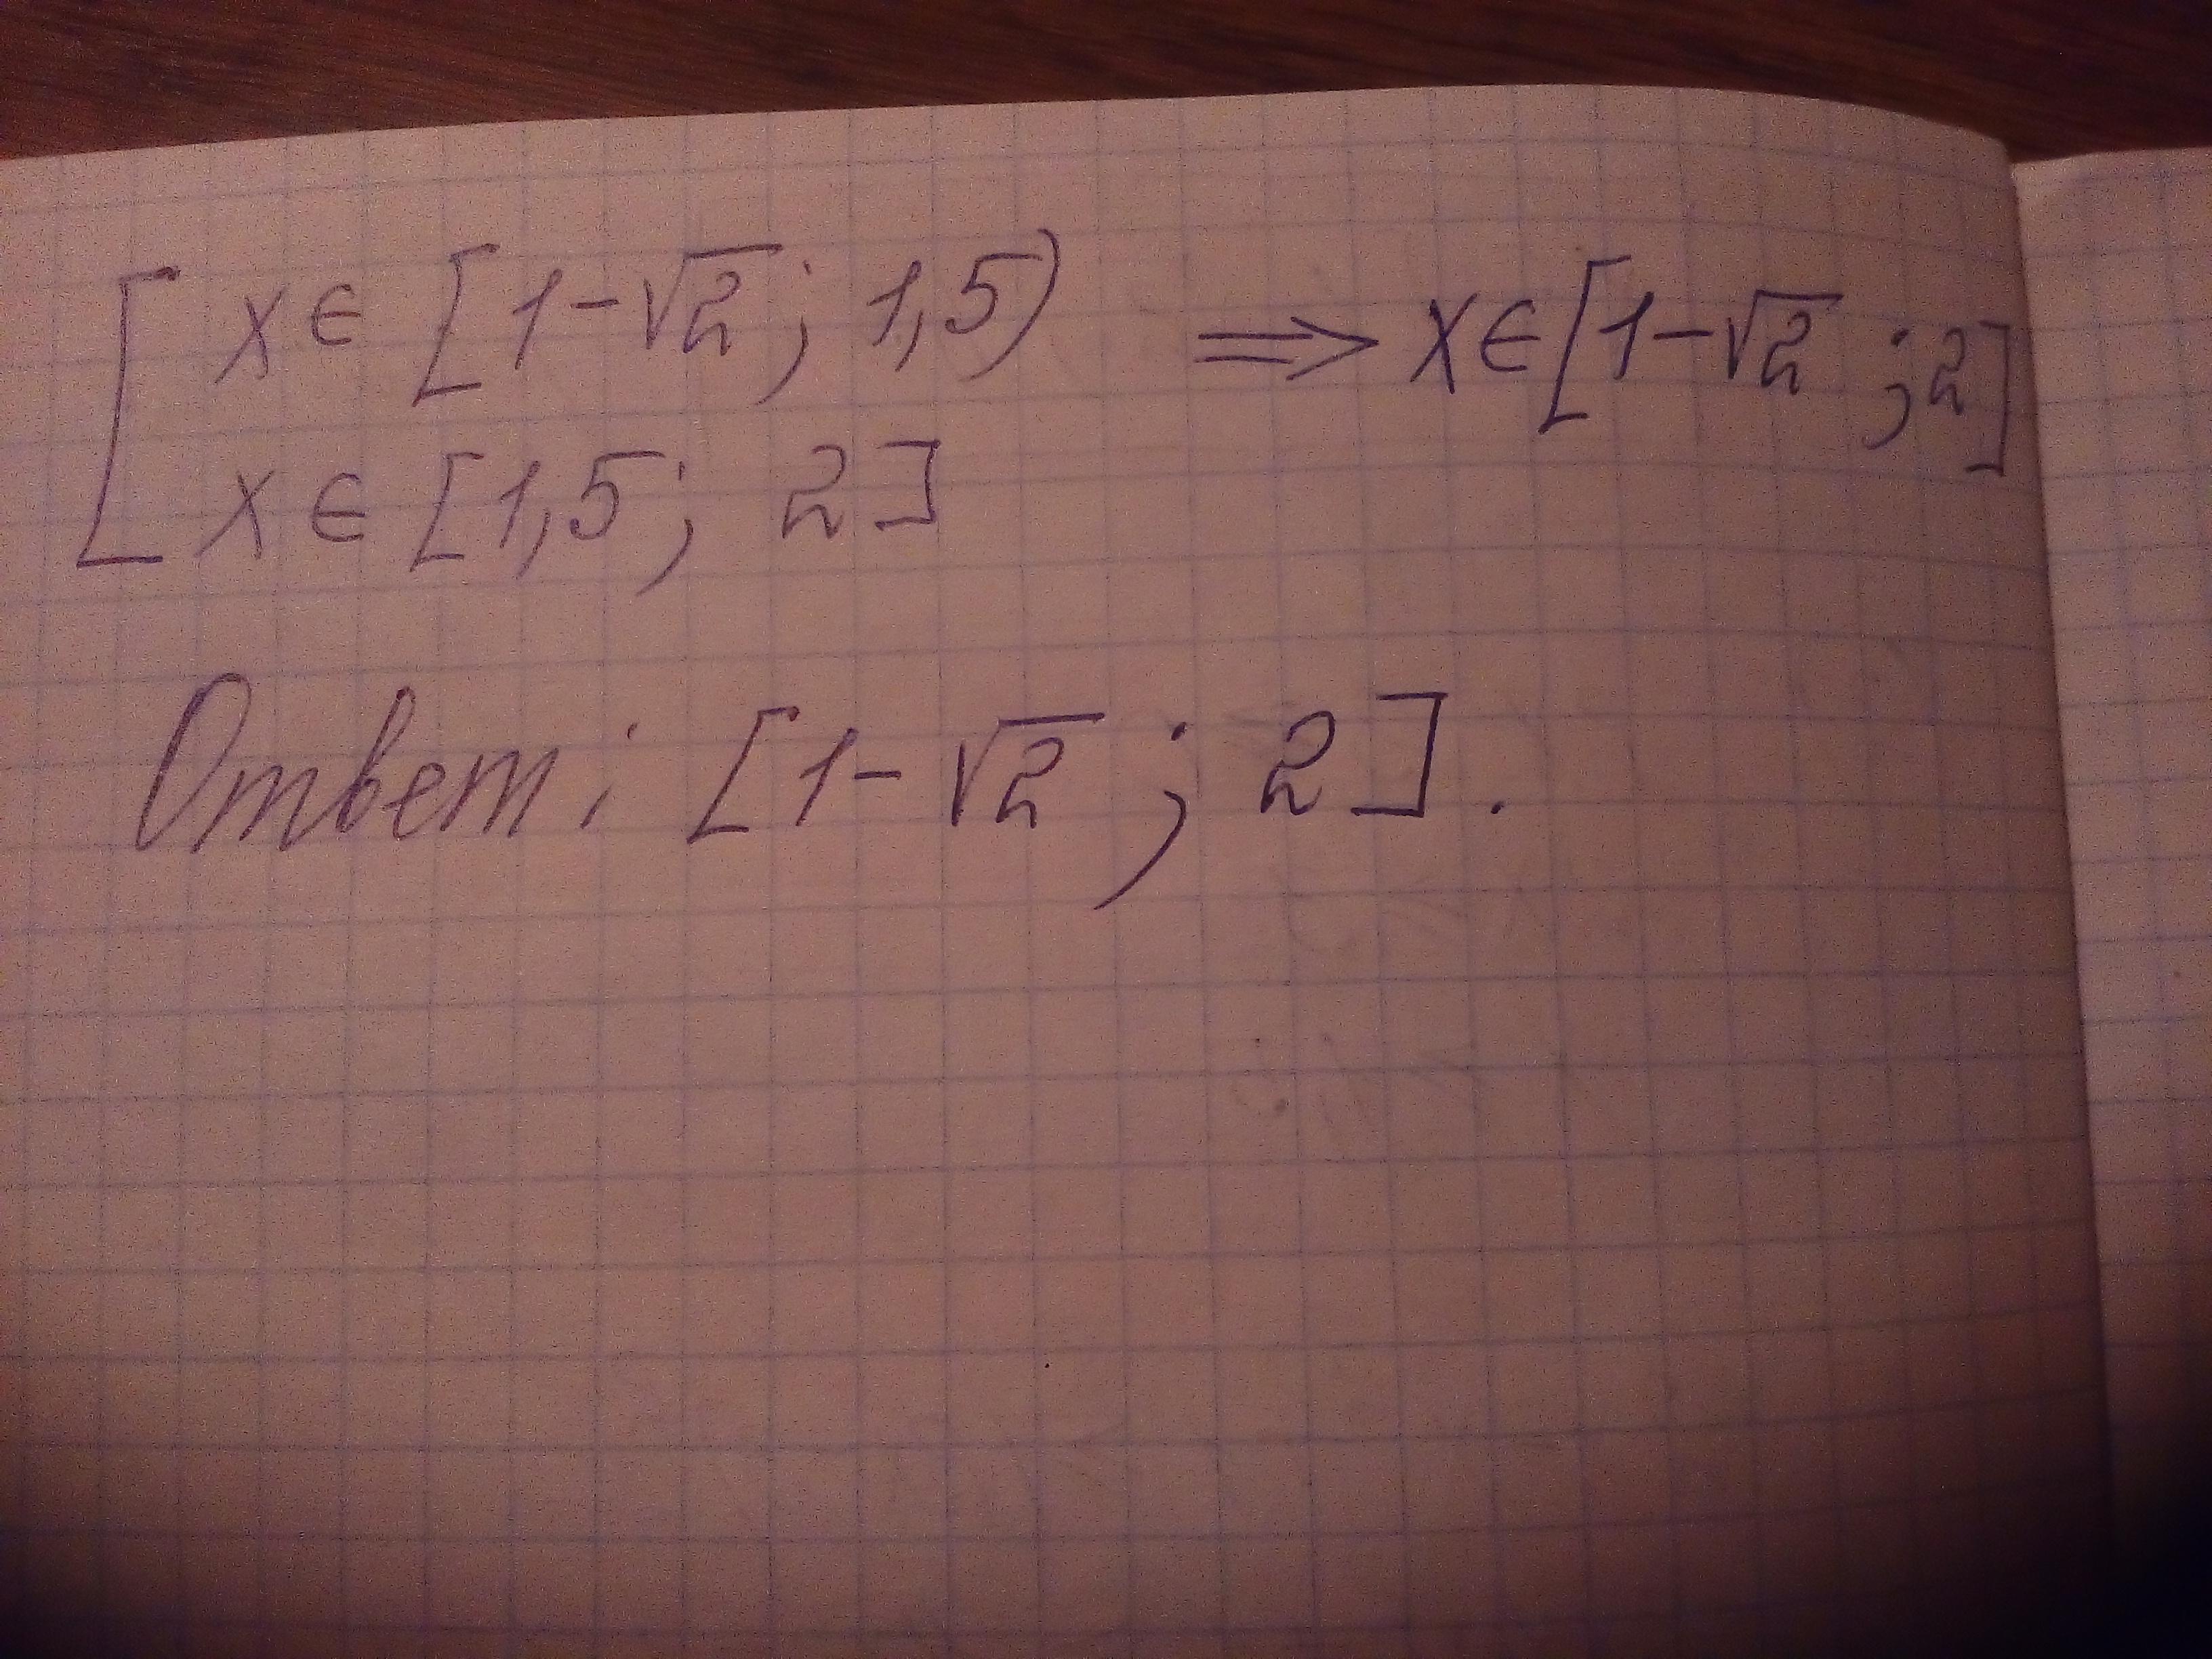 [ x ∈ [1-√2; 1,5) ⟹ x ∈ [1-√2 ; 2]
x ∈ [1,5; 2]
Ответ: [1-√2 ; 2].